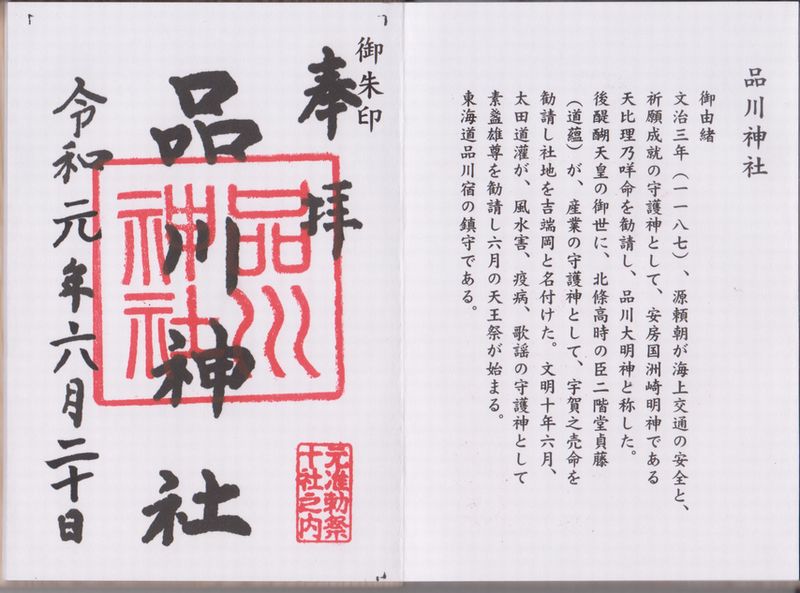 品川神社
御由緒
文治三年(一一八七)、源頼朝が海上交通の安全と、
祈願成就の守護神として、安房国洲崎明神である
天比理乃咩命を勧請し、品川大明神と称した。
後醍醐天皇の御世に、北條高時の臣二階堂貞藤
(道蘊)が、産業の守護神として、宇賀之売命を
勧請し社地を吉端岡と名付けた。文明十年六月、
太田道灌が、風水害、疫病、歌謡の守護神として
素盞雄尊を勧請し六月の天王祭が始まる。
東海道品川宿の鎮守である。
御朱印
奉拝
品川神社
令和元年六月二十日
品川
神社
元准勅祭
十社之内